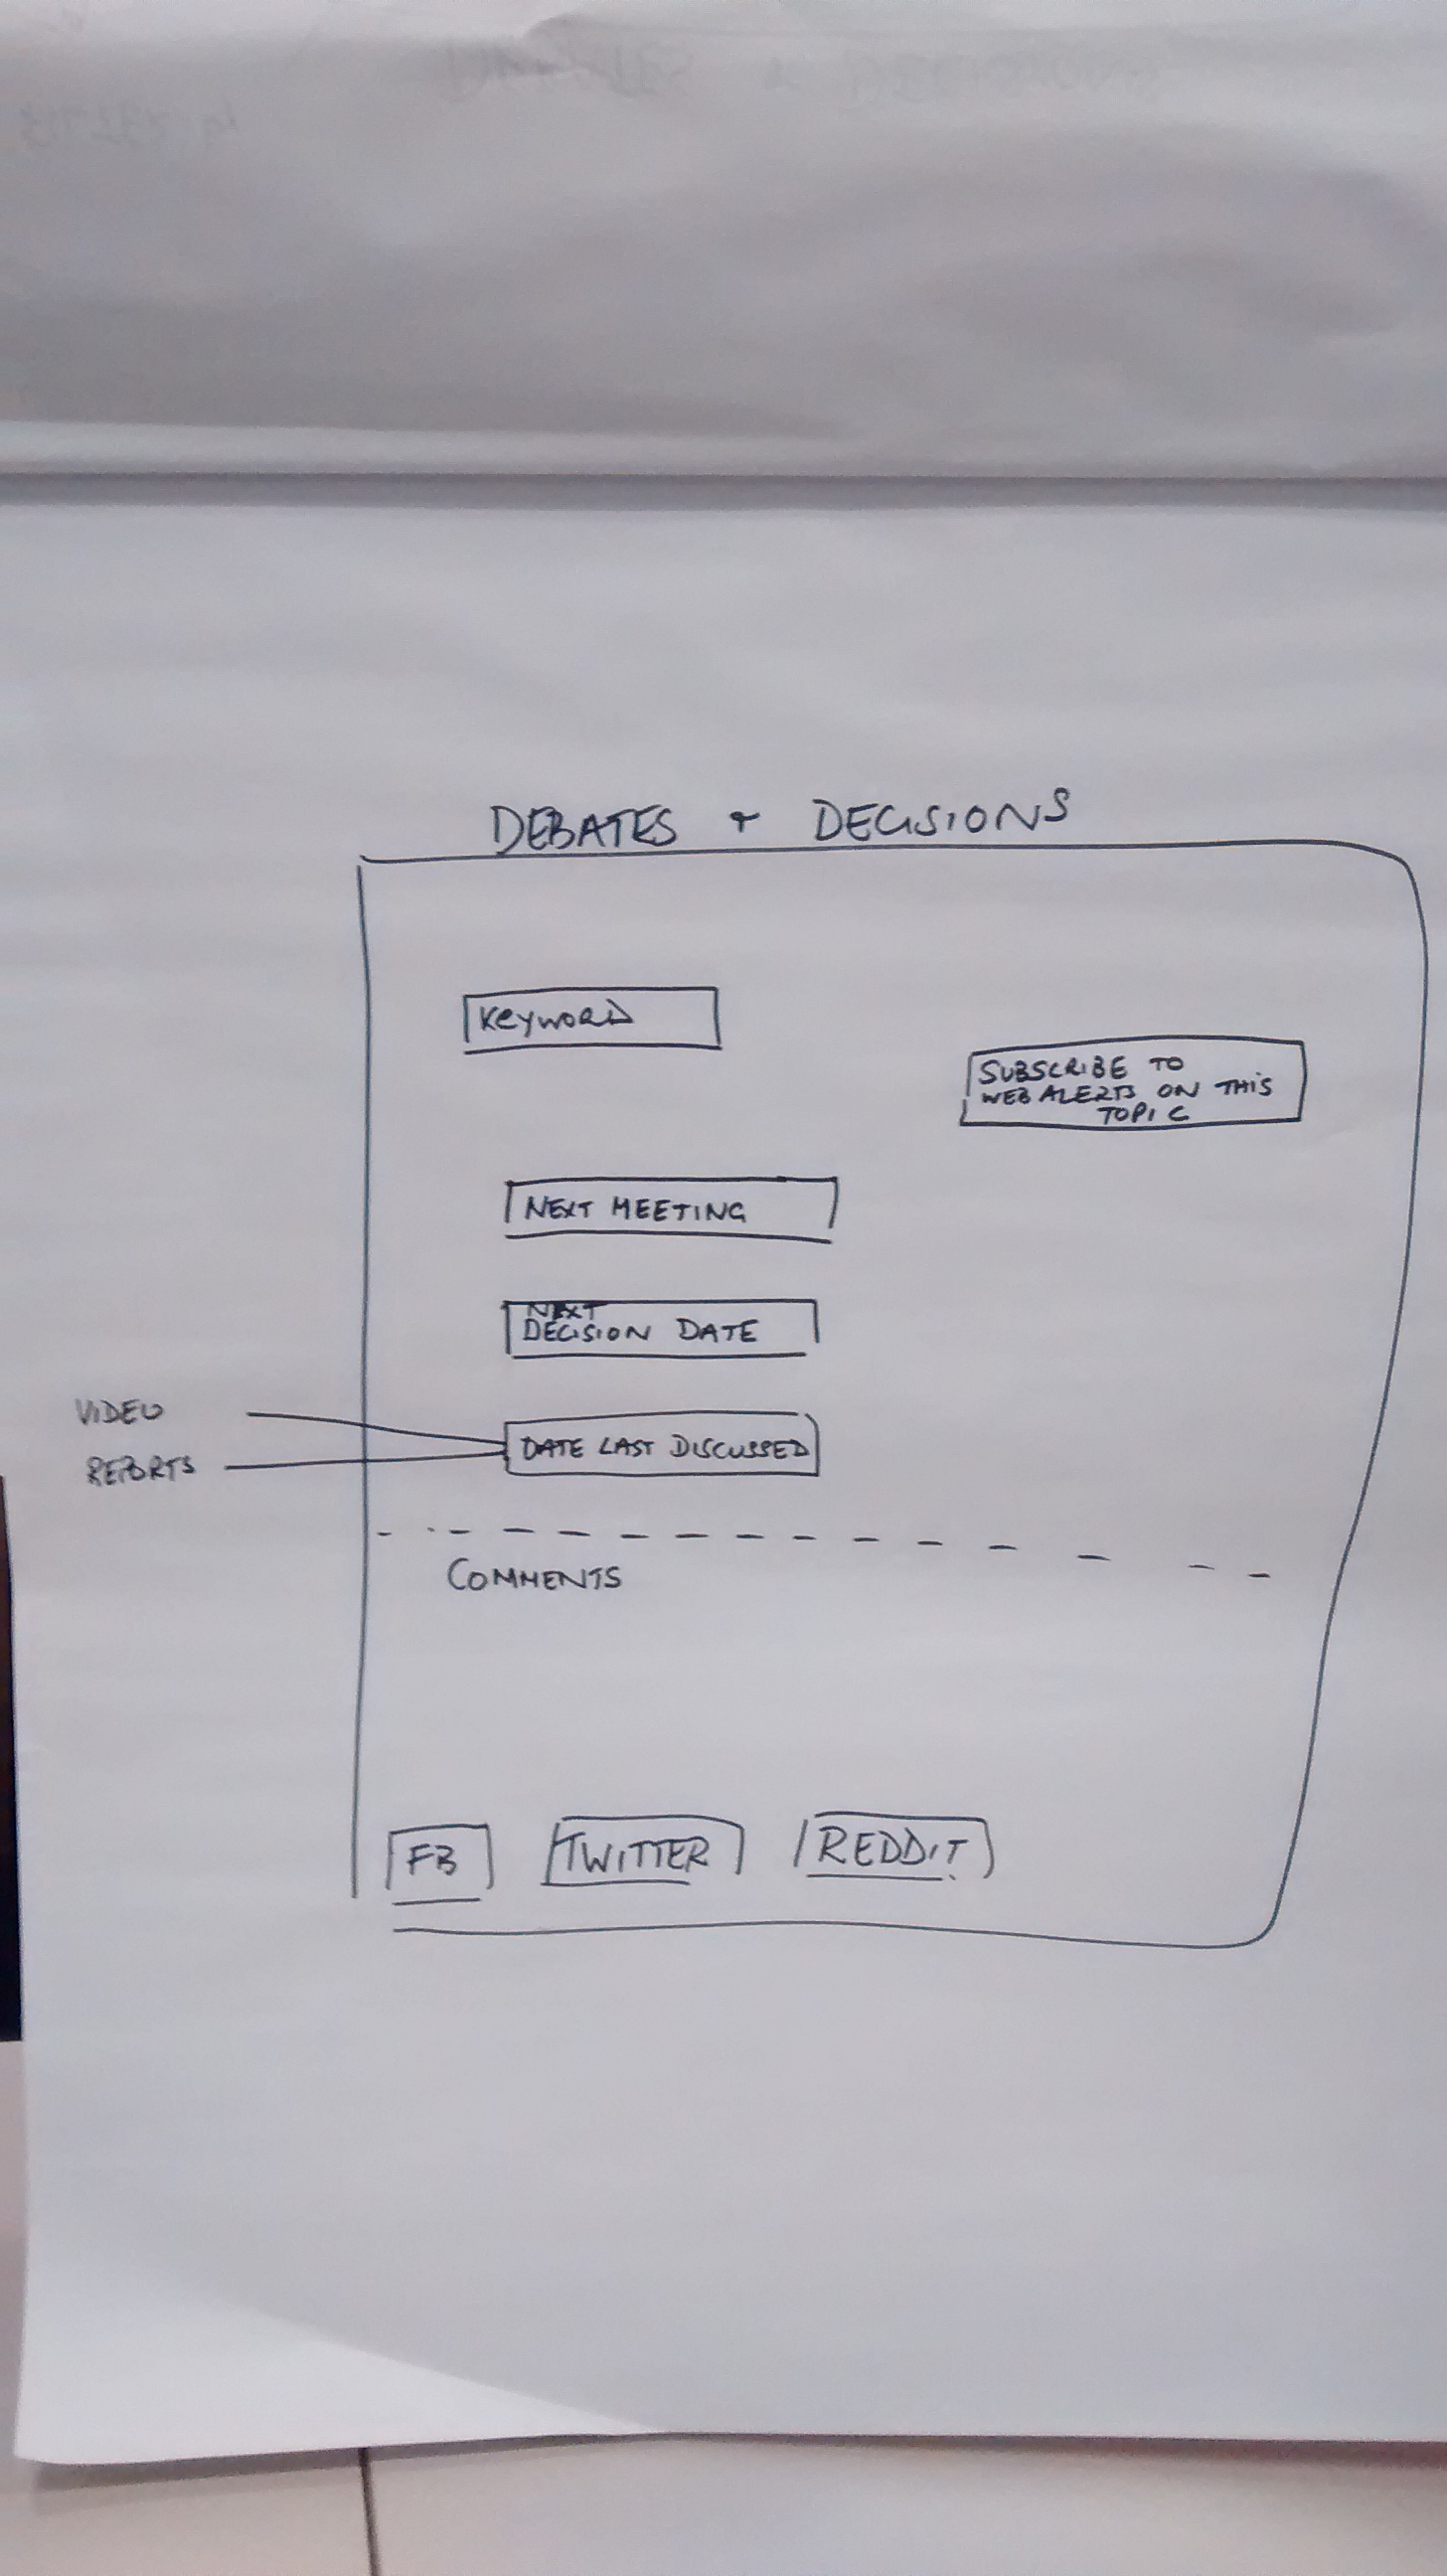 DEBATES + DECISIONS
Keyword
SUBSCRIBE TO
WEB ALERTS ON THIS
TOPIC
NEXT MEETING
NEXT
DECISION DATE
VIDEO
REPORTS
DATE LAST DISCUSSED
COMMENTS
FB
TWITTER
REDDIT